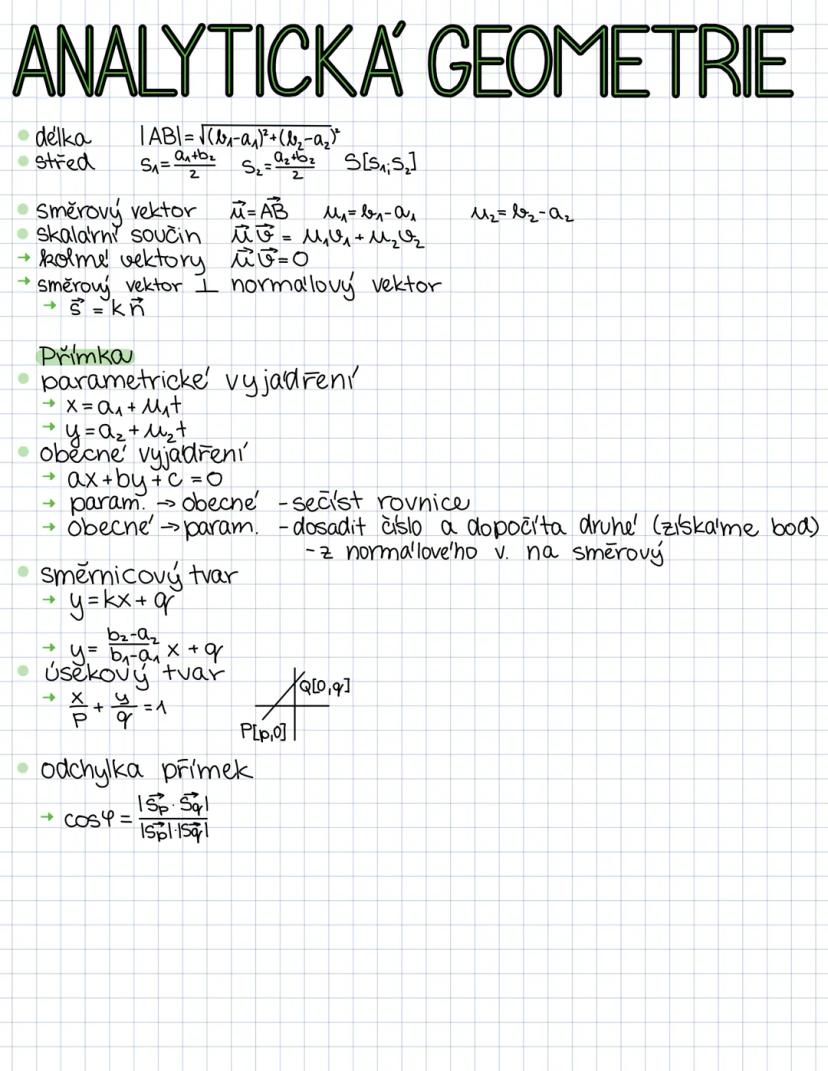 ANALYTICKÁ GEOMETRIE
• délka |AB| = √(b₁-a₁)²+(b₂-a₂)²
• střed S₁ = (a₁+b₂)/2 S₂ = (a₂+b₂)/2 S[s₁;s₂]
• směrový vektor u⃗ = AB⃗ u₁ = b₁-a₁ u₂ = b₂-a₂
• skalární součin u⃗ v⃗ = u₁v₁ + u₂v₂
→ kolmé vektory u⃗ v⃗ = 0
→ směrový vektor ⊥ normálový vektor
→ s⃗ = k n⃗
Přímka
• parametrické vyjádření
→ x = a₁ + u₁t
→ y = a₂ + u₂t
• obecné vyjádření
→ ax + by + c = 0
→ param. → obecné - sečíst rovnice
→ obecné → param. - dosadit číslo a dopočíta druhé (získáme bod)
- z normálového v. na směrový
• směrnicový tvar
→ y = kx + q
→ y = (b₂-a₂)/(b₁-a₁) x + q
• úsekový tvar
→ x/p + y/q = 1
Q[0,q]
P[p,0]
• odchylka přímek
→ cos φ = |s⃗p · s⃗q| / |s⃗p|·|s⃗q|